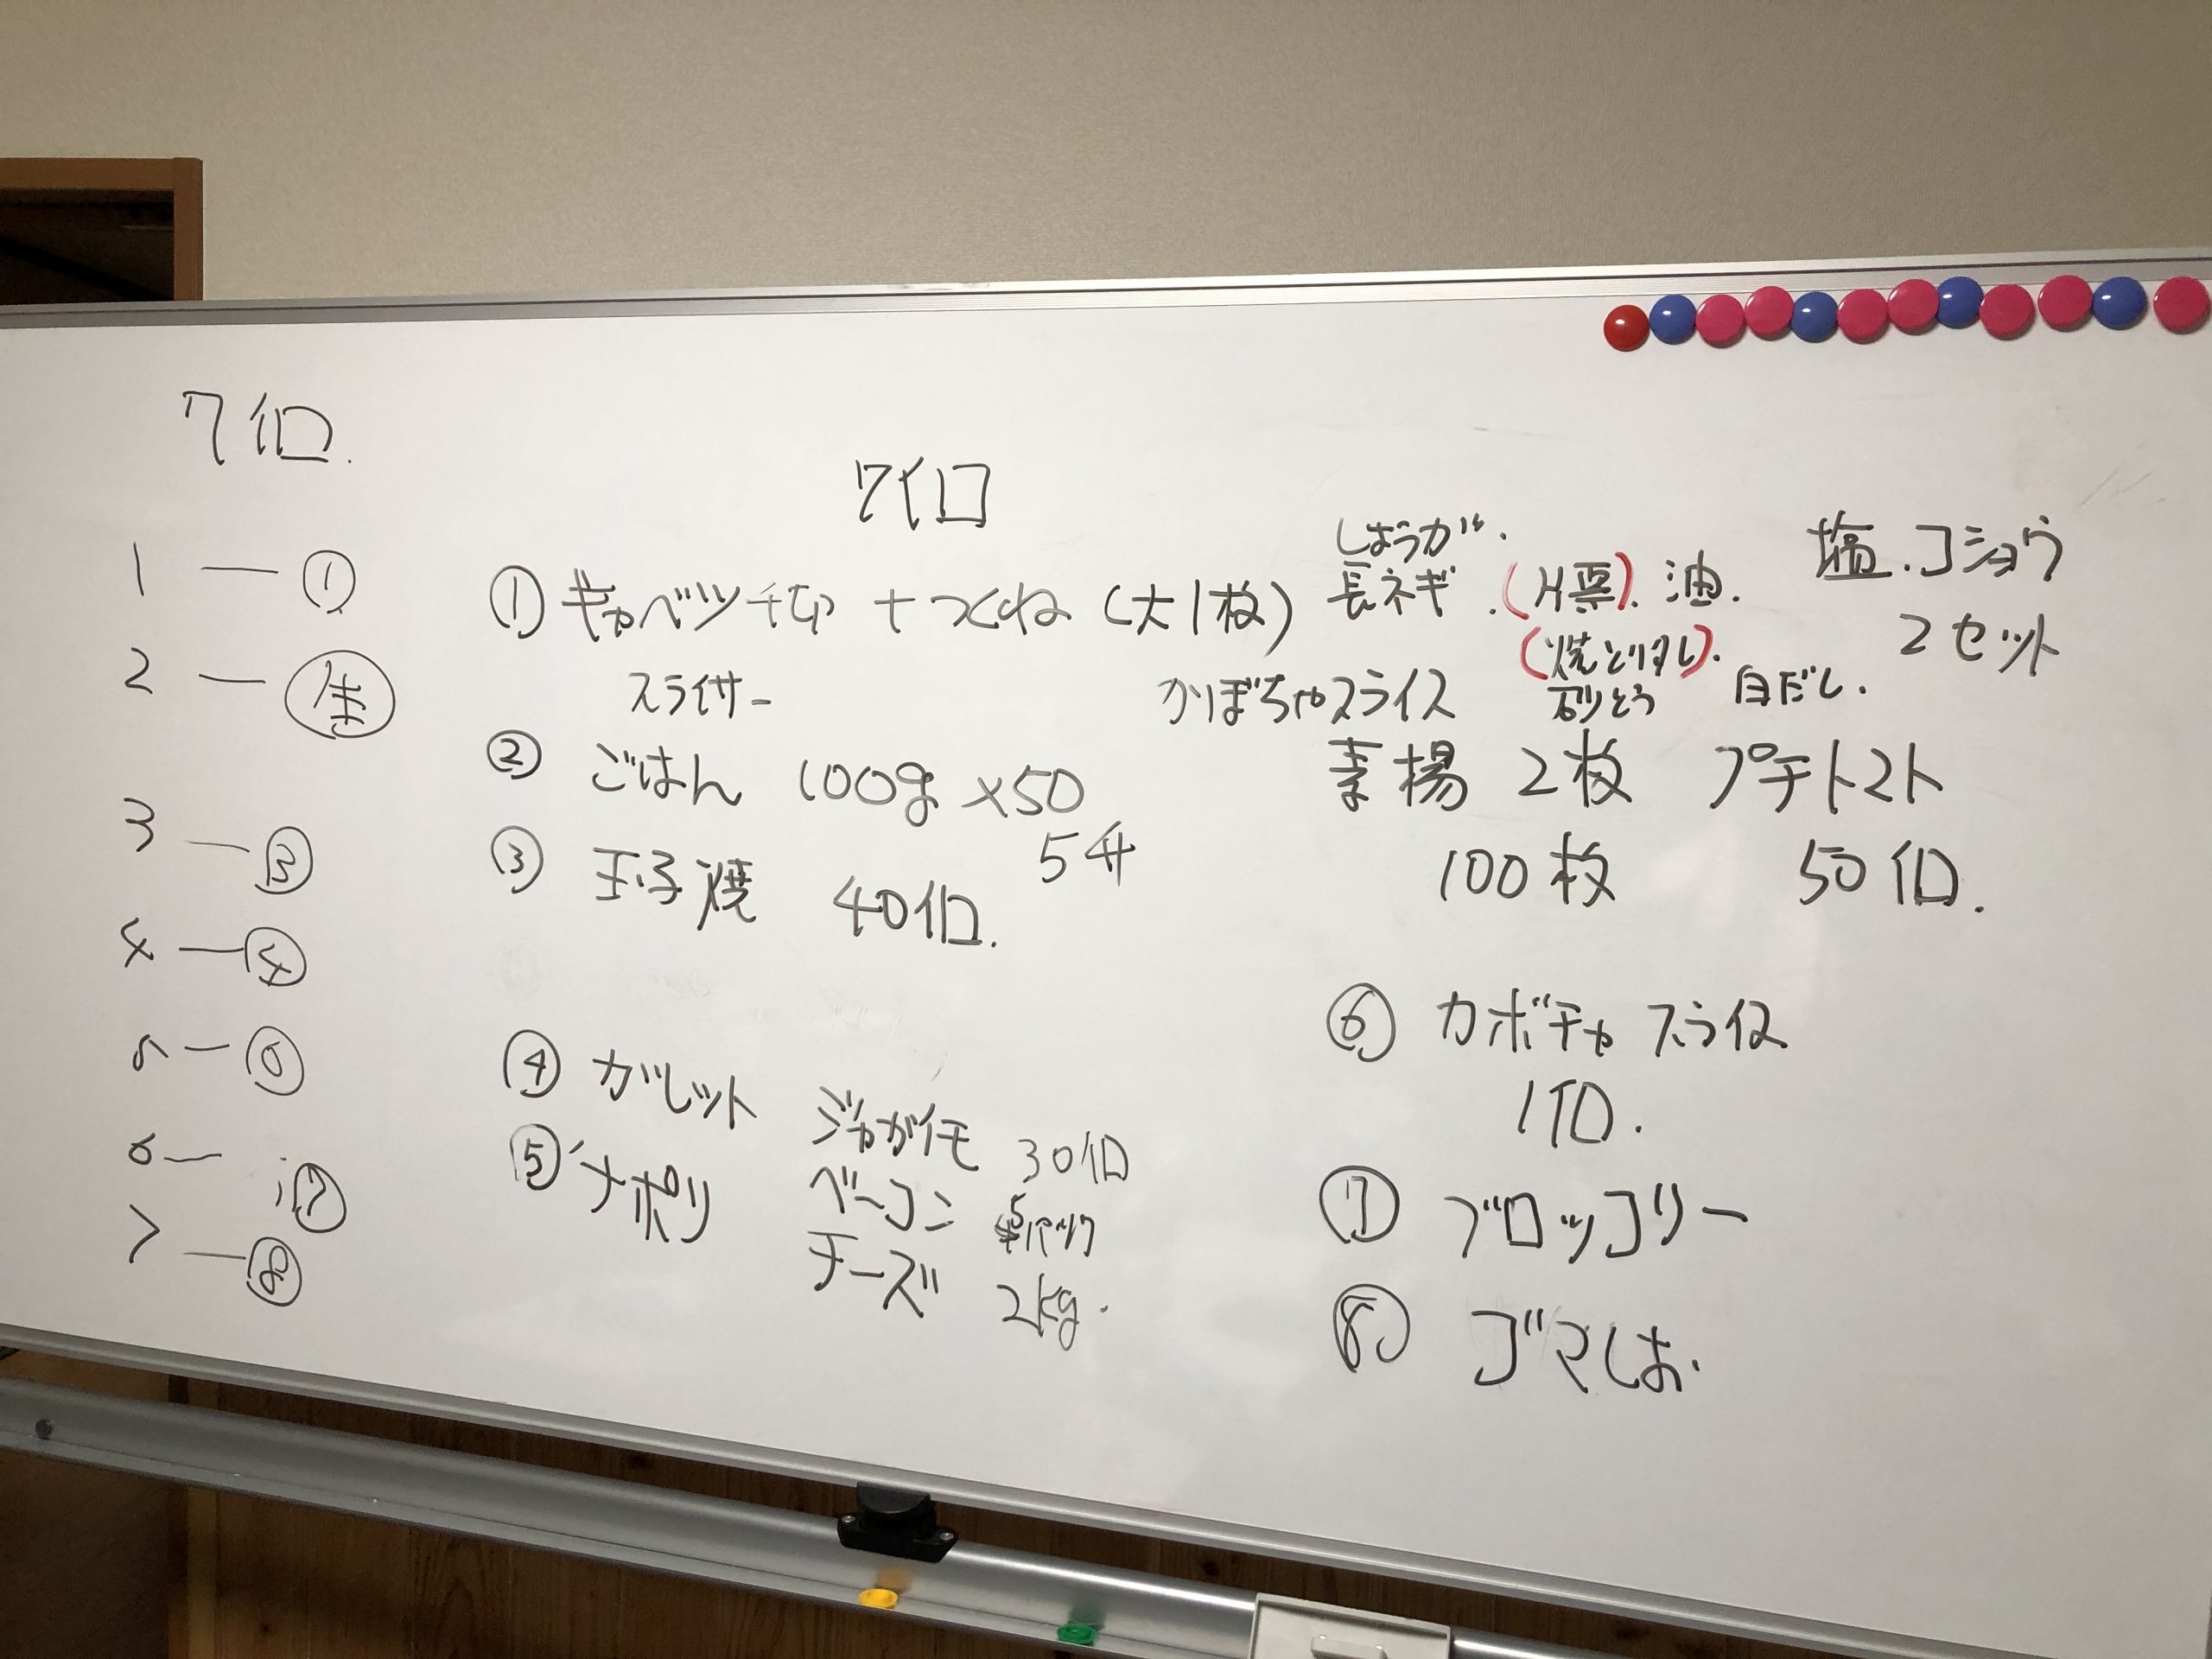 7個.
1 — ①
2 —
3 — ③
4 — ④
5 — ⑥
6 — ⑦
7 — ⑧
7個
① キャベツ千切 + つくね (大1枚)
スライサー
② ごはん 100g ×50
5升
③ 玉子焼 40個.
④ ガレット ジャガイモ 30個
⑤ ナポリ ベーコン 5パック
チーズ 2kg.
しょうが.
長ネギ. (片栗). 油.
(焼とりタレ).
砂とう 白だし.
塩.コショウ
2セット
かぼちゃスライス
素揚 2枚 プチトマト
100枚 50個.
⑥ カボチャ スライス
1個.
⑦ ブロッコリー
⑧ ゴマしお.